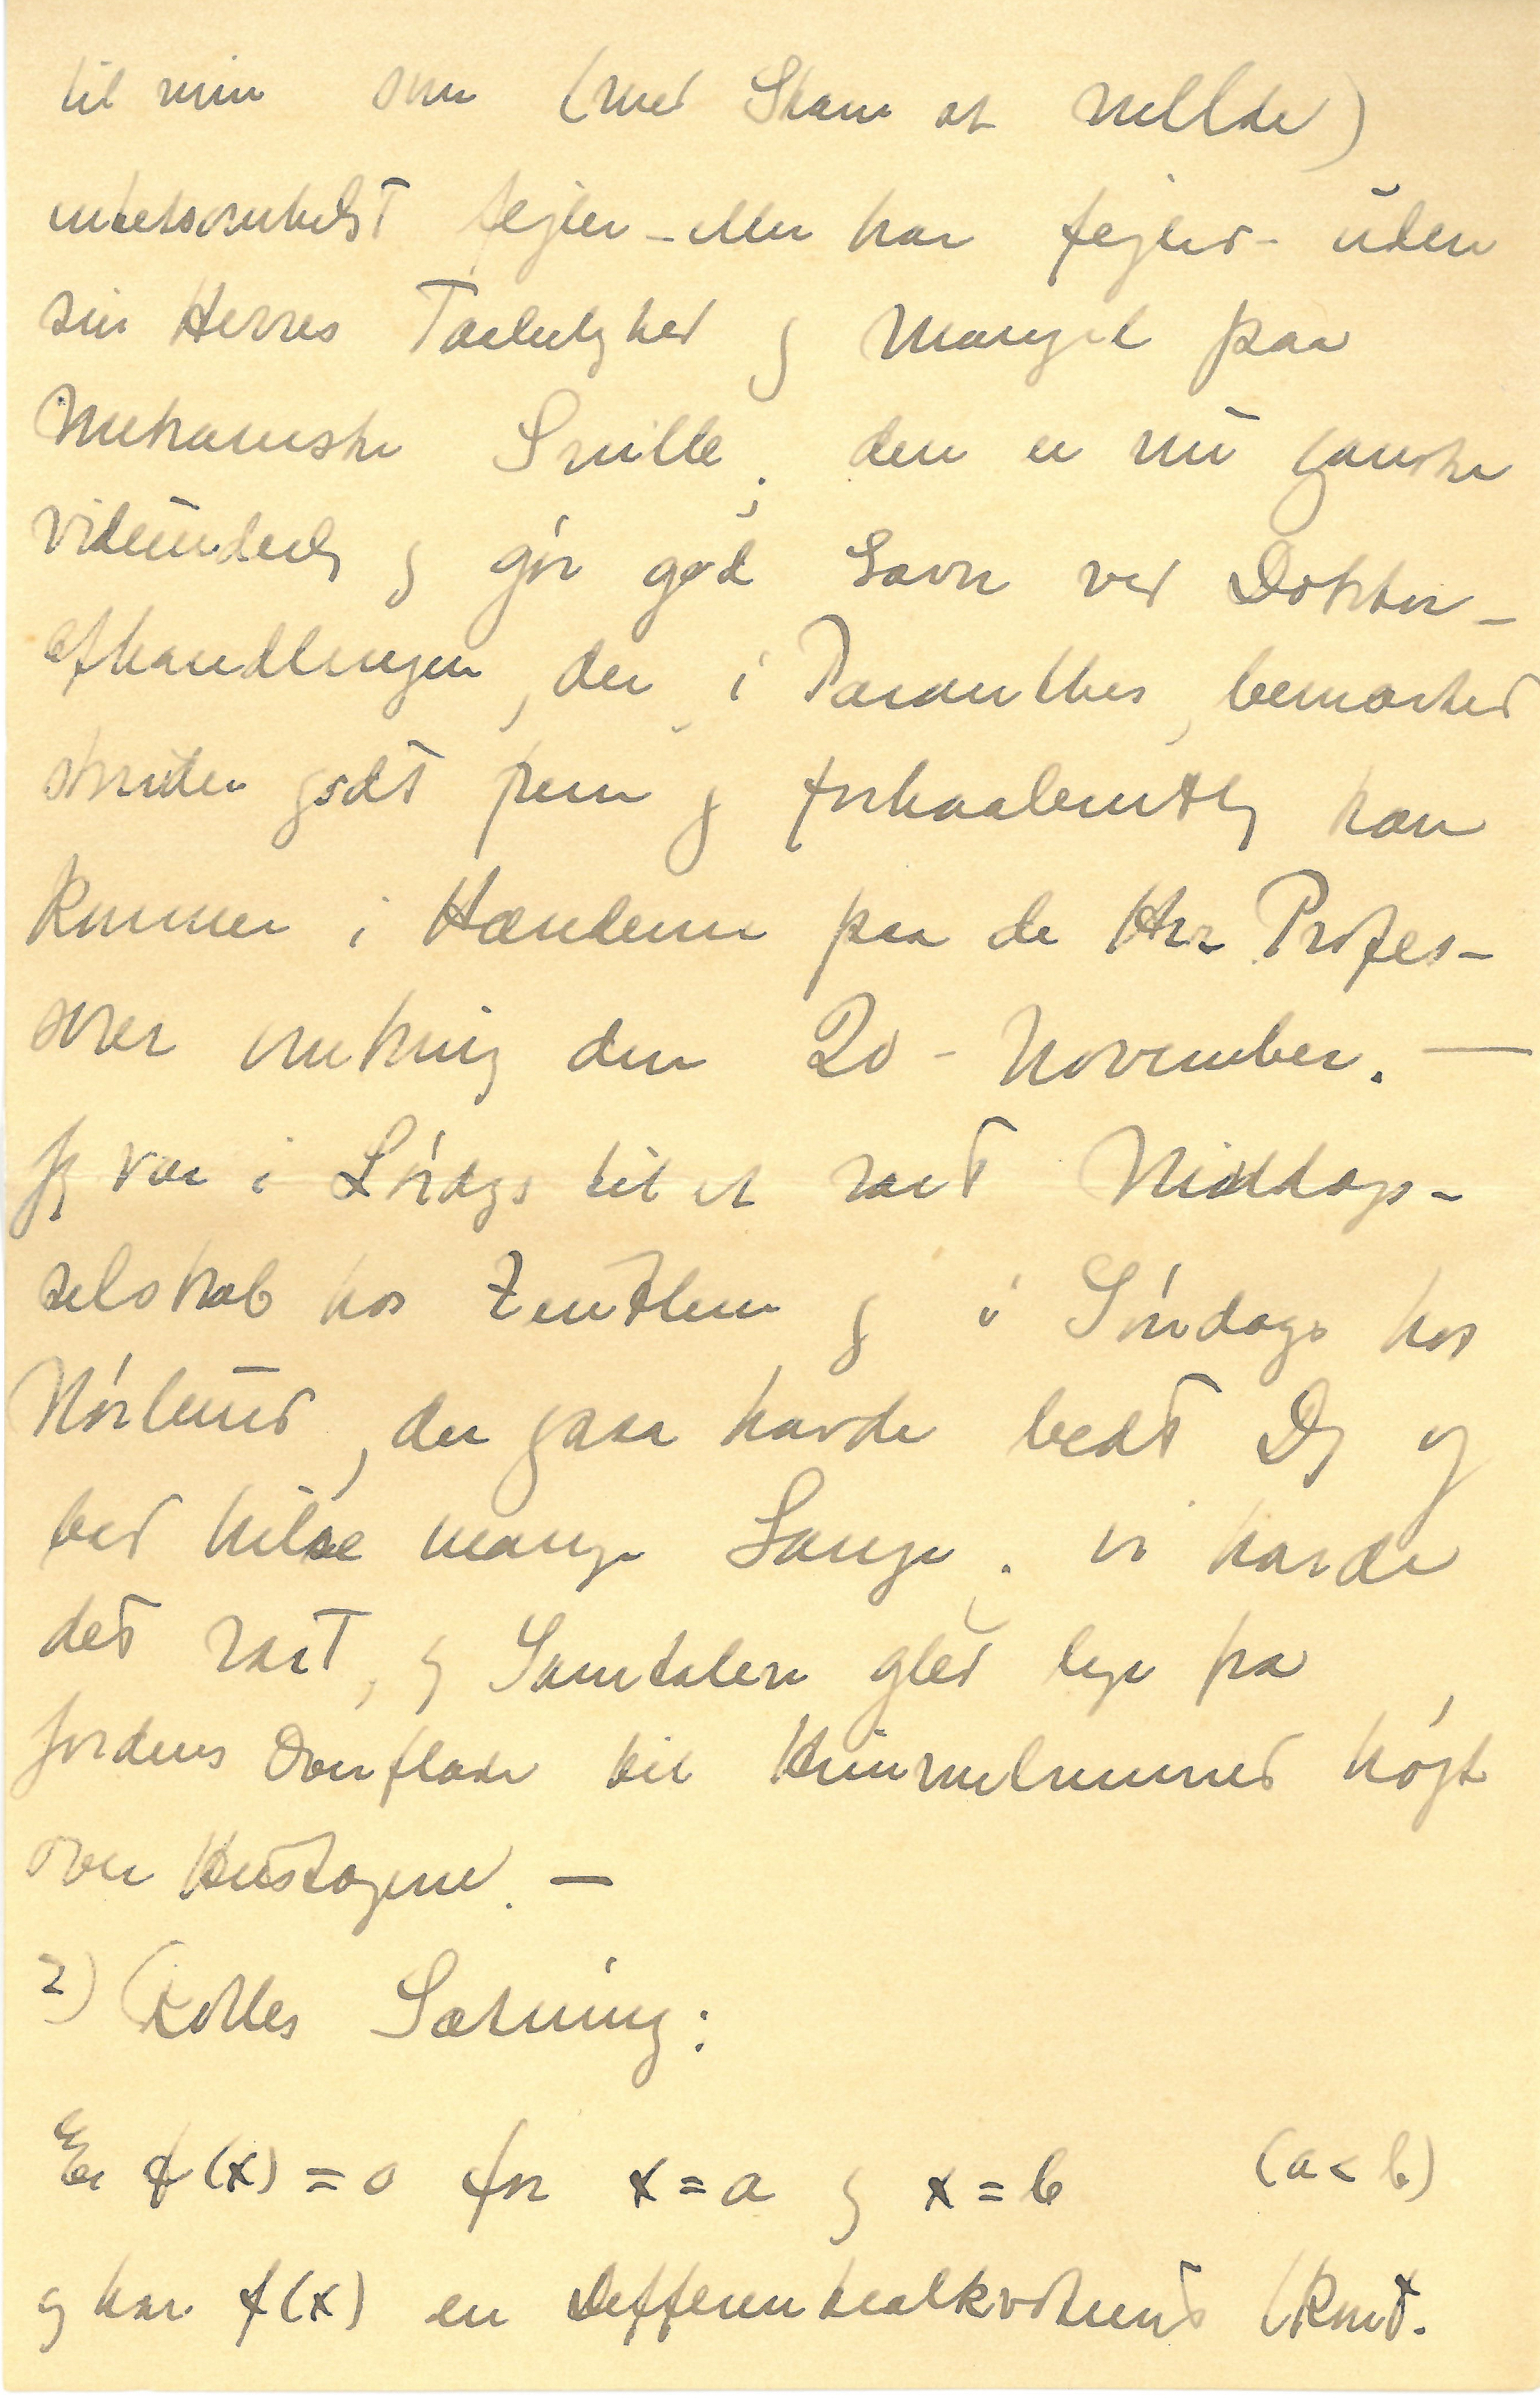 til min som (med Skam at mellde)
intetsomhelst fejler - eller har fejlet - uden
sin Herres Taabelighed og Mangel paa
mekaniske Snille; den er nu ganske
vidunderlig og gör god Gavn ved Doktor-
afhandlingen, der, i Paranthes, bemærket
skrider godt frem og forhaabentlig kan
komme i Hænderne paa de Hrr Profes-
sorer omkring den 20 - November. —
Jeg var i Lördags til et rart Middags-
selskab hos Zeuthen og i Söndags hos
Nörlund, der ogsaa havde bedt Dig og
bad hilse mange Gange; vi havde
det rart, og Samtalen gled lige fra
Jordens Overflade til Himmelrummet højt
over Hustagene. —
2) (Rolles Sætning:
Er f(x) = 0 for x = a og x = b (a < b)
og har f(x) en Differentialkvotient (kont.